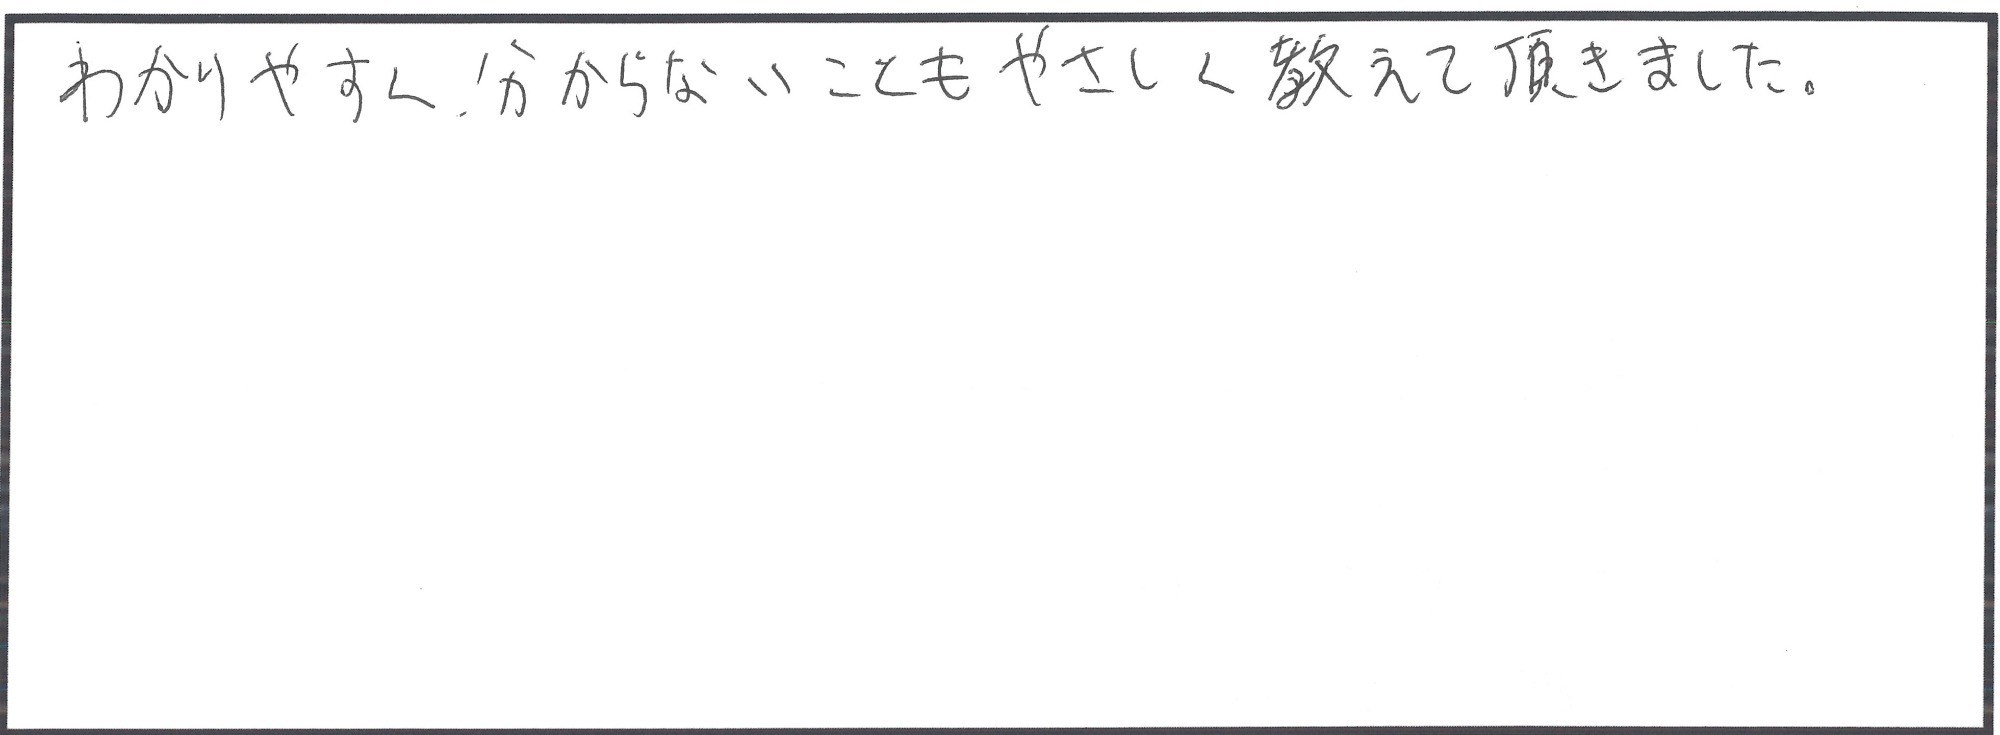 わかりやすく、分からないこともやさしく教えて頂きました。